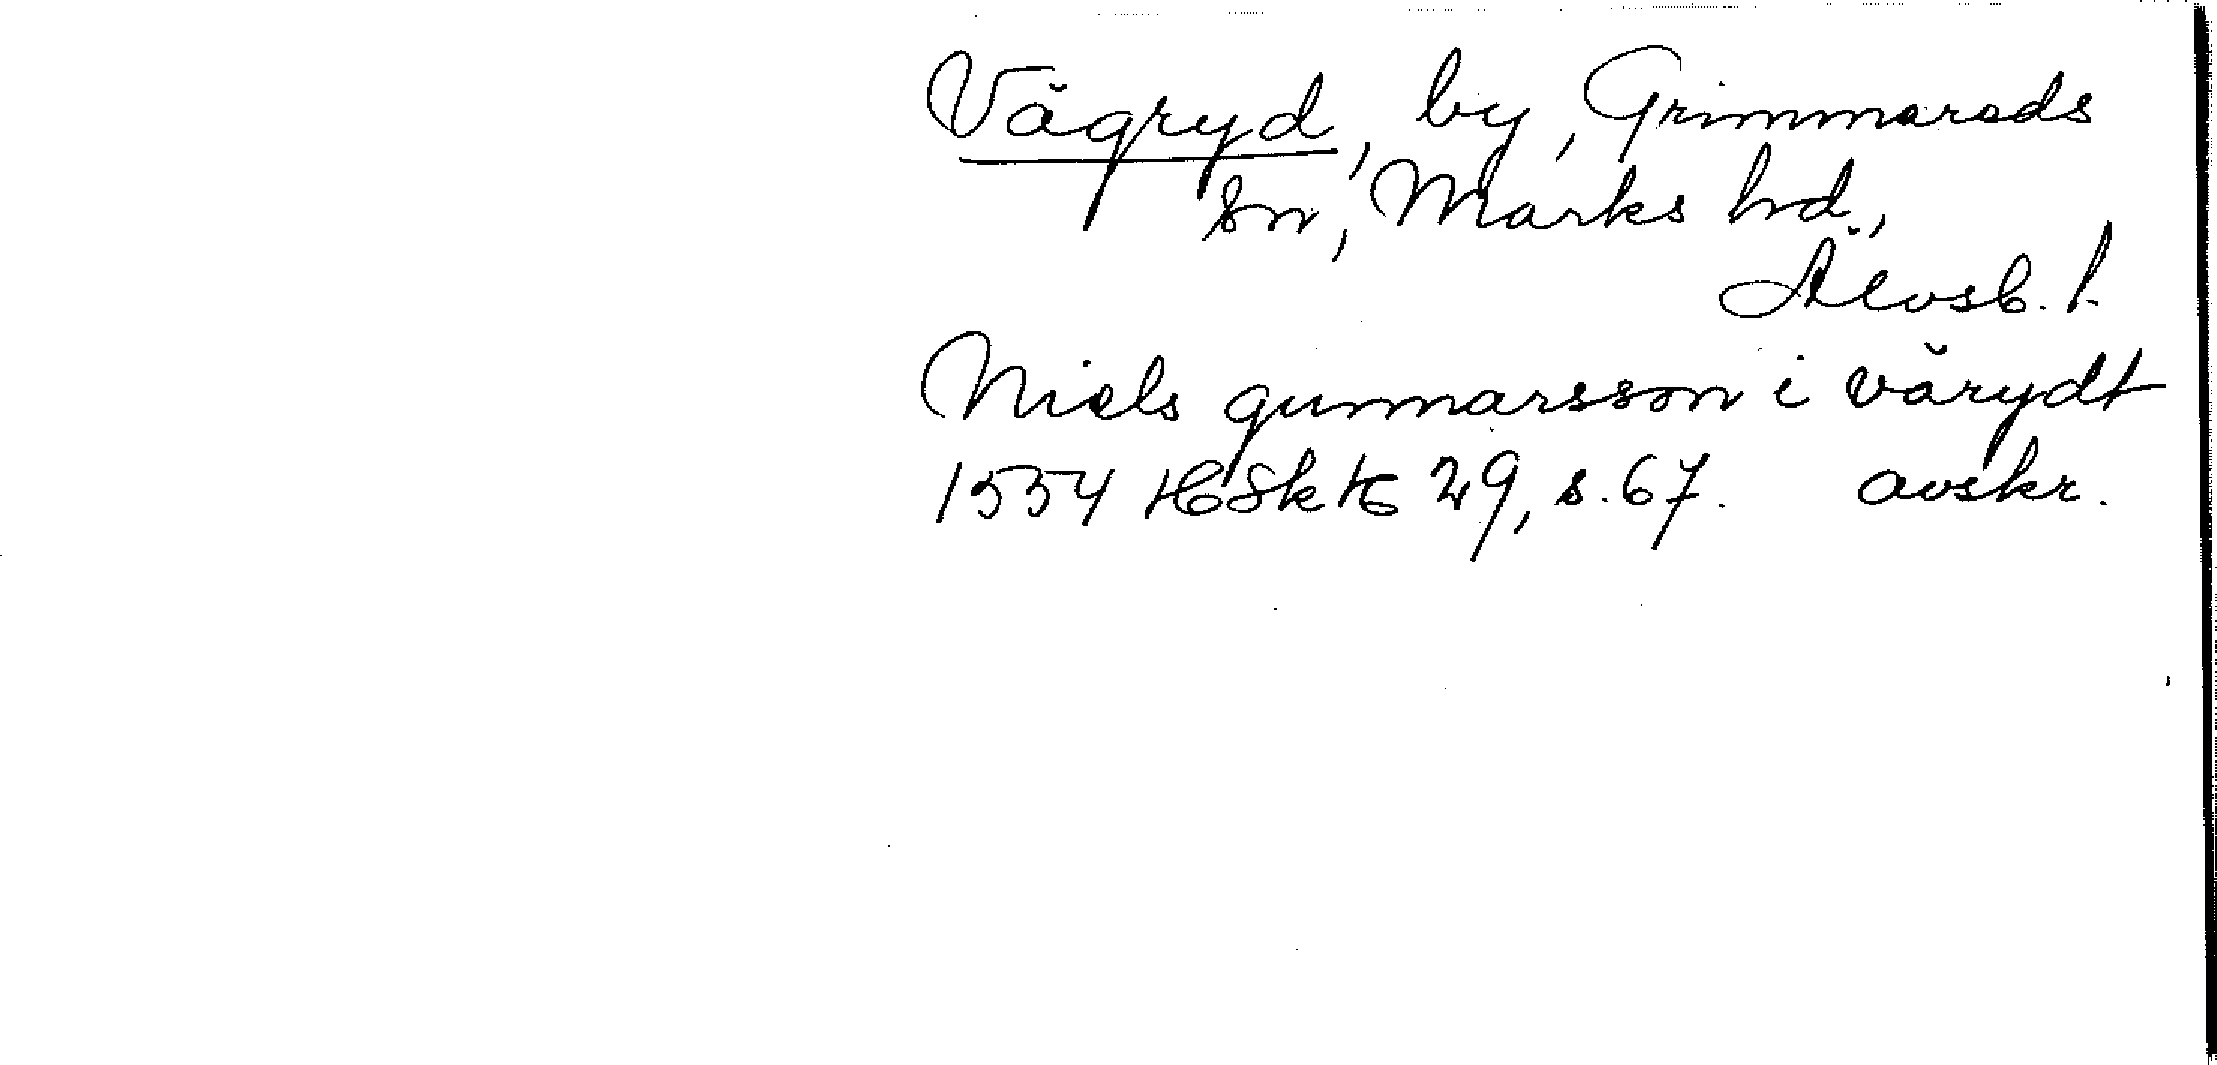 Vägryd, by, Grimmareds
sn, Marks hd,
Älvsb. l.
Niels gunnarsson i värydt
1554 HSkH 29, s. 67. avskr.